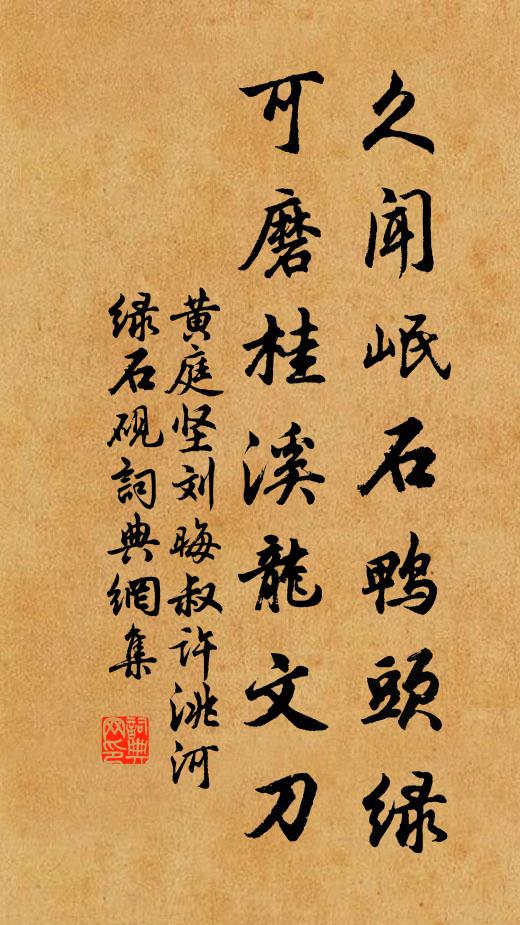 久闻岷石鸭头绿
可磨桂溪龍文刀
黄庭坚刘晦叔许洮河
绿石砚詞典網集
詞典
网印